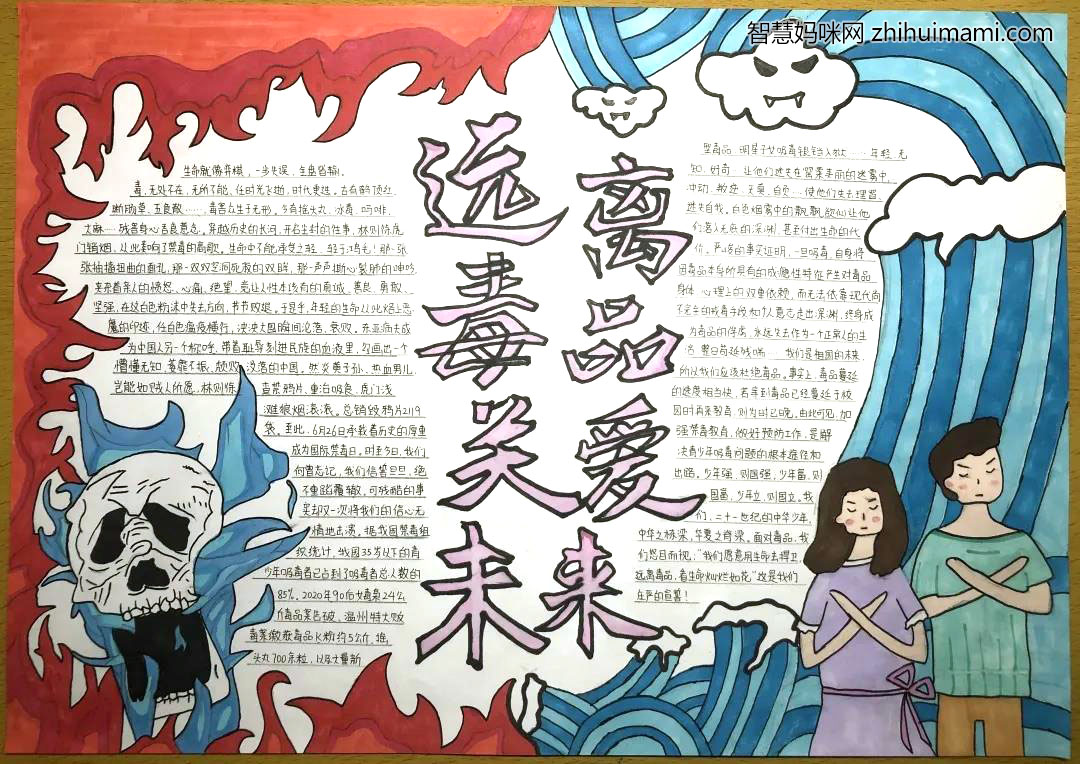 智慧妈咪网 zhihuimami.com
远离
毒品
关爱
未来
生命就像弈棋，一步失误，全盘皆输。
毒，无处不在，无所不能。任时光飞逝，时代变迁。古有鹤顶红
断肠草、五良散……，毒害众生于无形。今有摇头丸、冰毒、吗啡、
大麻……残害身心丢良善念。穿越历史的长河，开启尘封的往事，林则徐虎
门销烟，从此和向了禁毒的高歌。生命中不能承受之轻，轻于鸿毛！那一张
张抽搐扭曲的面孔，那一双双空洞死寂的双眸，那一声声撕心裂肺的呻吟，
变亲着亲人的愤怒、心痛、绝望，竟让人性本该有的真诚、善良、勇敢、
坚强，在这白色粉沫中失去方向，节节败退。于是乎，年轻的生命从此烙上恶
魔的印迹，任白色瘟疫横行，泱泱大国瞬间沦落、衰败。东亚病夫成
为中国人另一个称呼，带着耻辱刻进民族的血液里，勾画出一个
懵懂无知、萎靡不振、颓败、没落的中国。然炎黄子孙、热血男儿，
岂能如贼人所愿，林则徐
查禁鸦片，重治吸食，虎门浅
滩狼烟滚滚，总销毁鸦片2119
袋。至此，6月26日承载着历史的厚重
成为国际禁毒日。时至今日，我们
何曾忘记，我们信誓旦旦，绝
不重蹈覆辙，可残酷的事
实却又一次将我们的信心无
情地击溃。据我国禁毒组
织统计，我国35岁以下的青
少年吸毒者已占到了吸毒者总人数的
85%。2020年90后女毒枭24公
斤毒品案告破，温州特大贩
毒案缴获毒品K粉约5公斤，摇
头丸700余粒，以及大量新
型毒品，明星子女吸毒锒铛入狱……年轻、无
知、好奇……让他们迷失在罂粟美丽的迷雾中，
冲动、叛逆、天桑、自负……使他们失去理智、
迷失自我。白色烟雾中的飘飘欲仙让他
们落入无底的深渊，甚至付出生命的代
价。严峻的事实证明，一旦吸毒，自身将
因毒品本身所具有的成瘾性特征产生对毒品
身体、心理上的双重依赖，而无法依靠现代尚
不完全的戒毒手段和个人意志走出深渊，终身成
为毒品的俘虏，永远失去作为一个正常人的生
活，整日苟延残喘……我们是祖国的未来，
所以我们应该杜绝毒品。事实上，毒品蔓延
的速度相当快，若等到毒品已经蔓延于校
园时再来教育，则为时已晚。由此可见，加
强禁毒教育，做好预防工作，是解
决青少年吸毒问题的根本途径和
出路。少年强，则国强，少年富，则
国富，少年立，则国立。我
们，二十一世纪的中华少年，
中华之栋梁，华夏之脊梁。面对毒品，我
们怒目而视，“我们愿意用生命去捍卫
远离毒品，看生命灿烂如花”这是我们
庄严的宣誓！